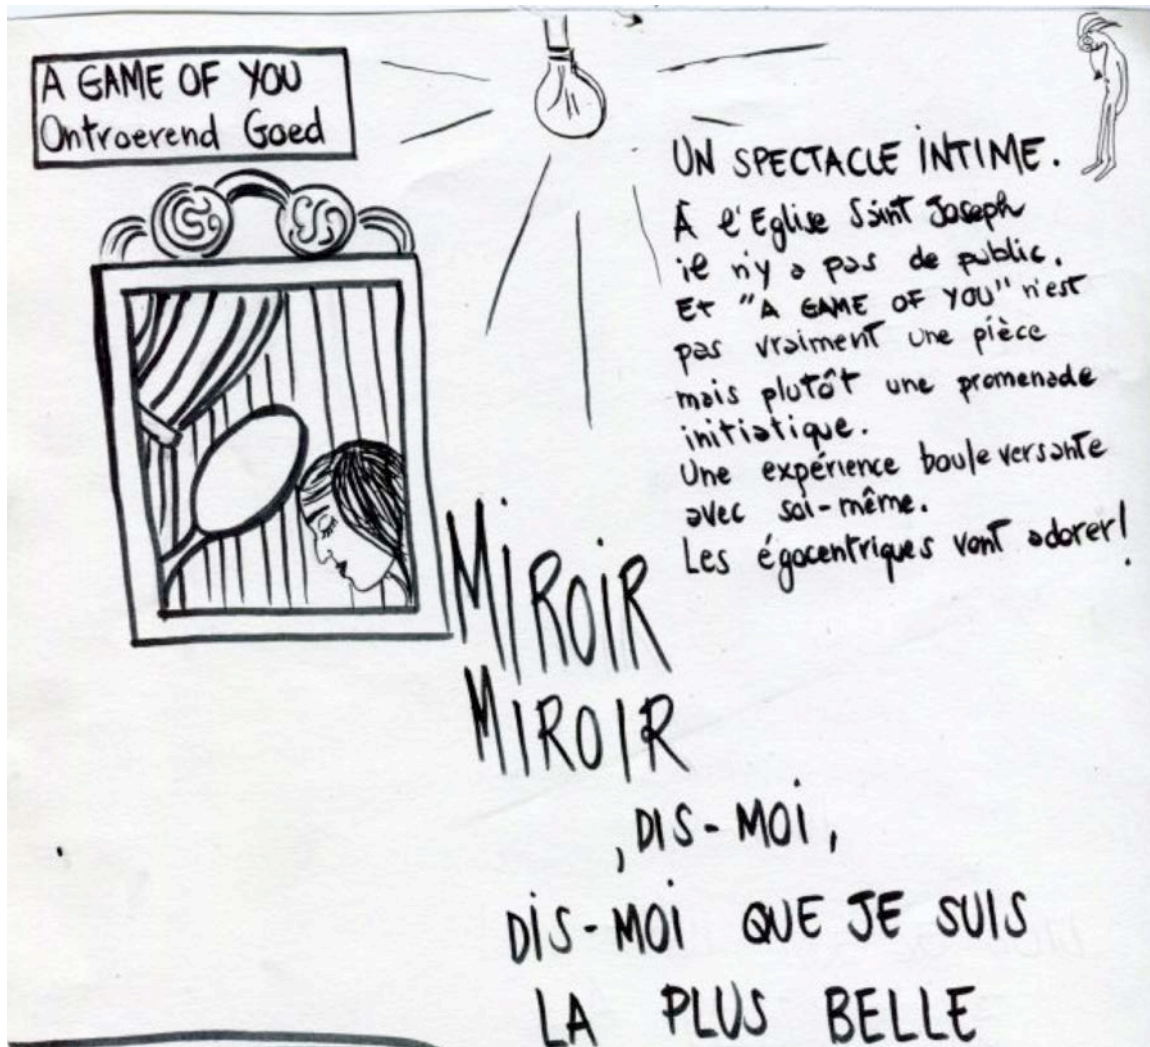 A GAME OF YOU
Ontroerend Goed
UN SPECTACLE INTIME.
À l'Eglise Saint Joseph
il n'y a pas de public.
Et "A GAME OF YOU" n'est
pas vraiment une pièce
mais plutôt une promenade
initiatique.
Une expérience bouleversante
avec soi-même.
Les égocentriques vont adorer!
MIROIR
MIROIR
, DIS-MOI,
DIS-MOI QUE JE SUIS
LA PLUS BELLE